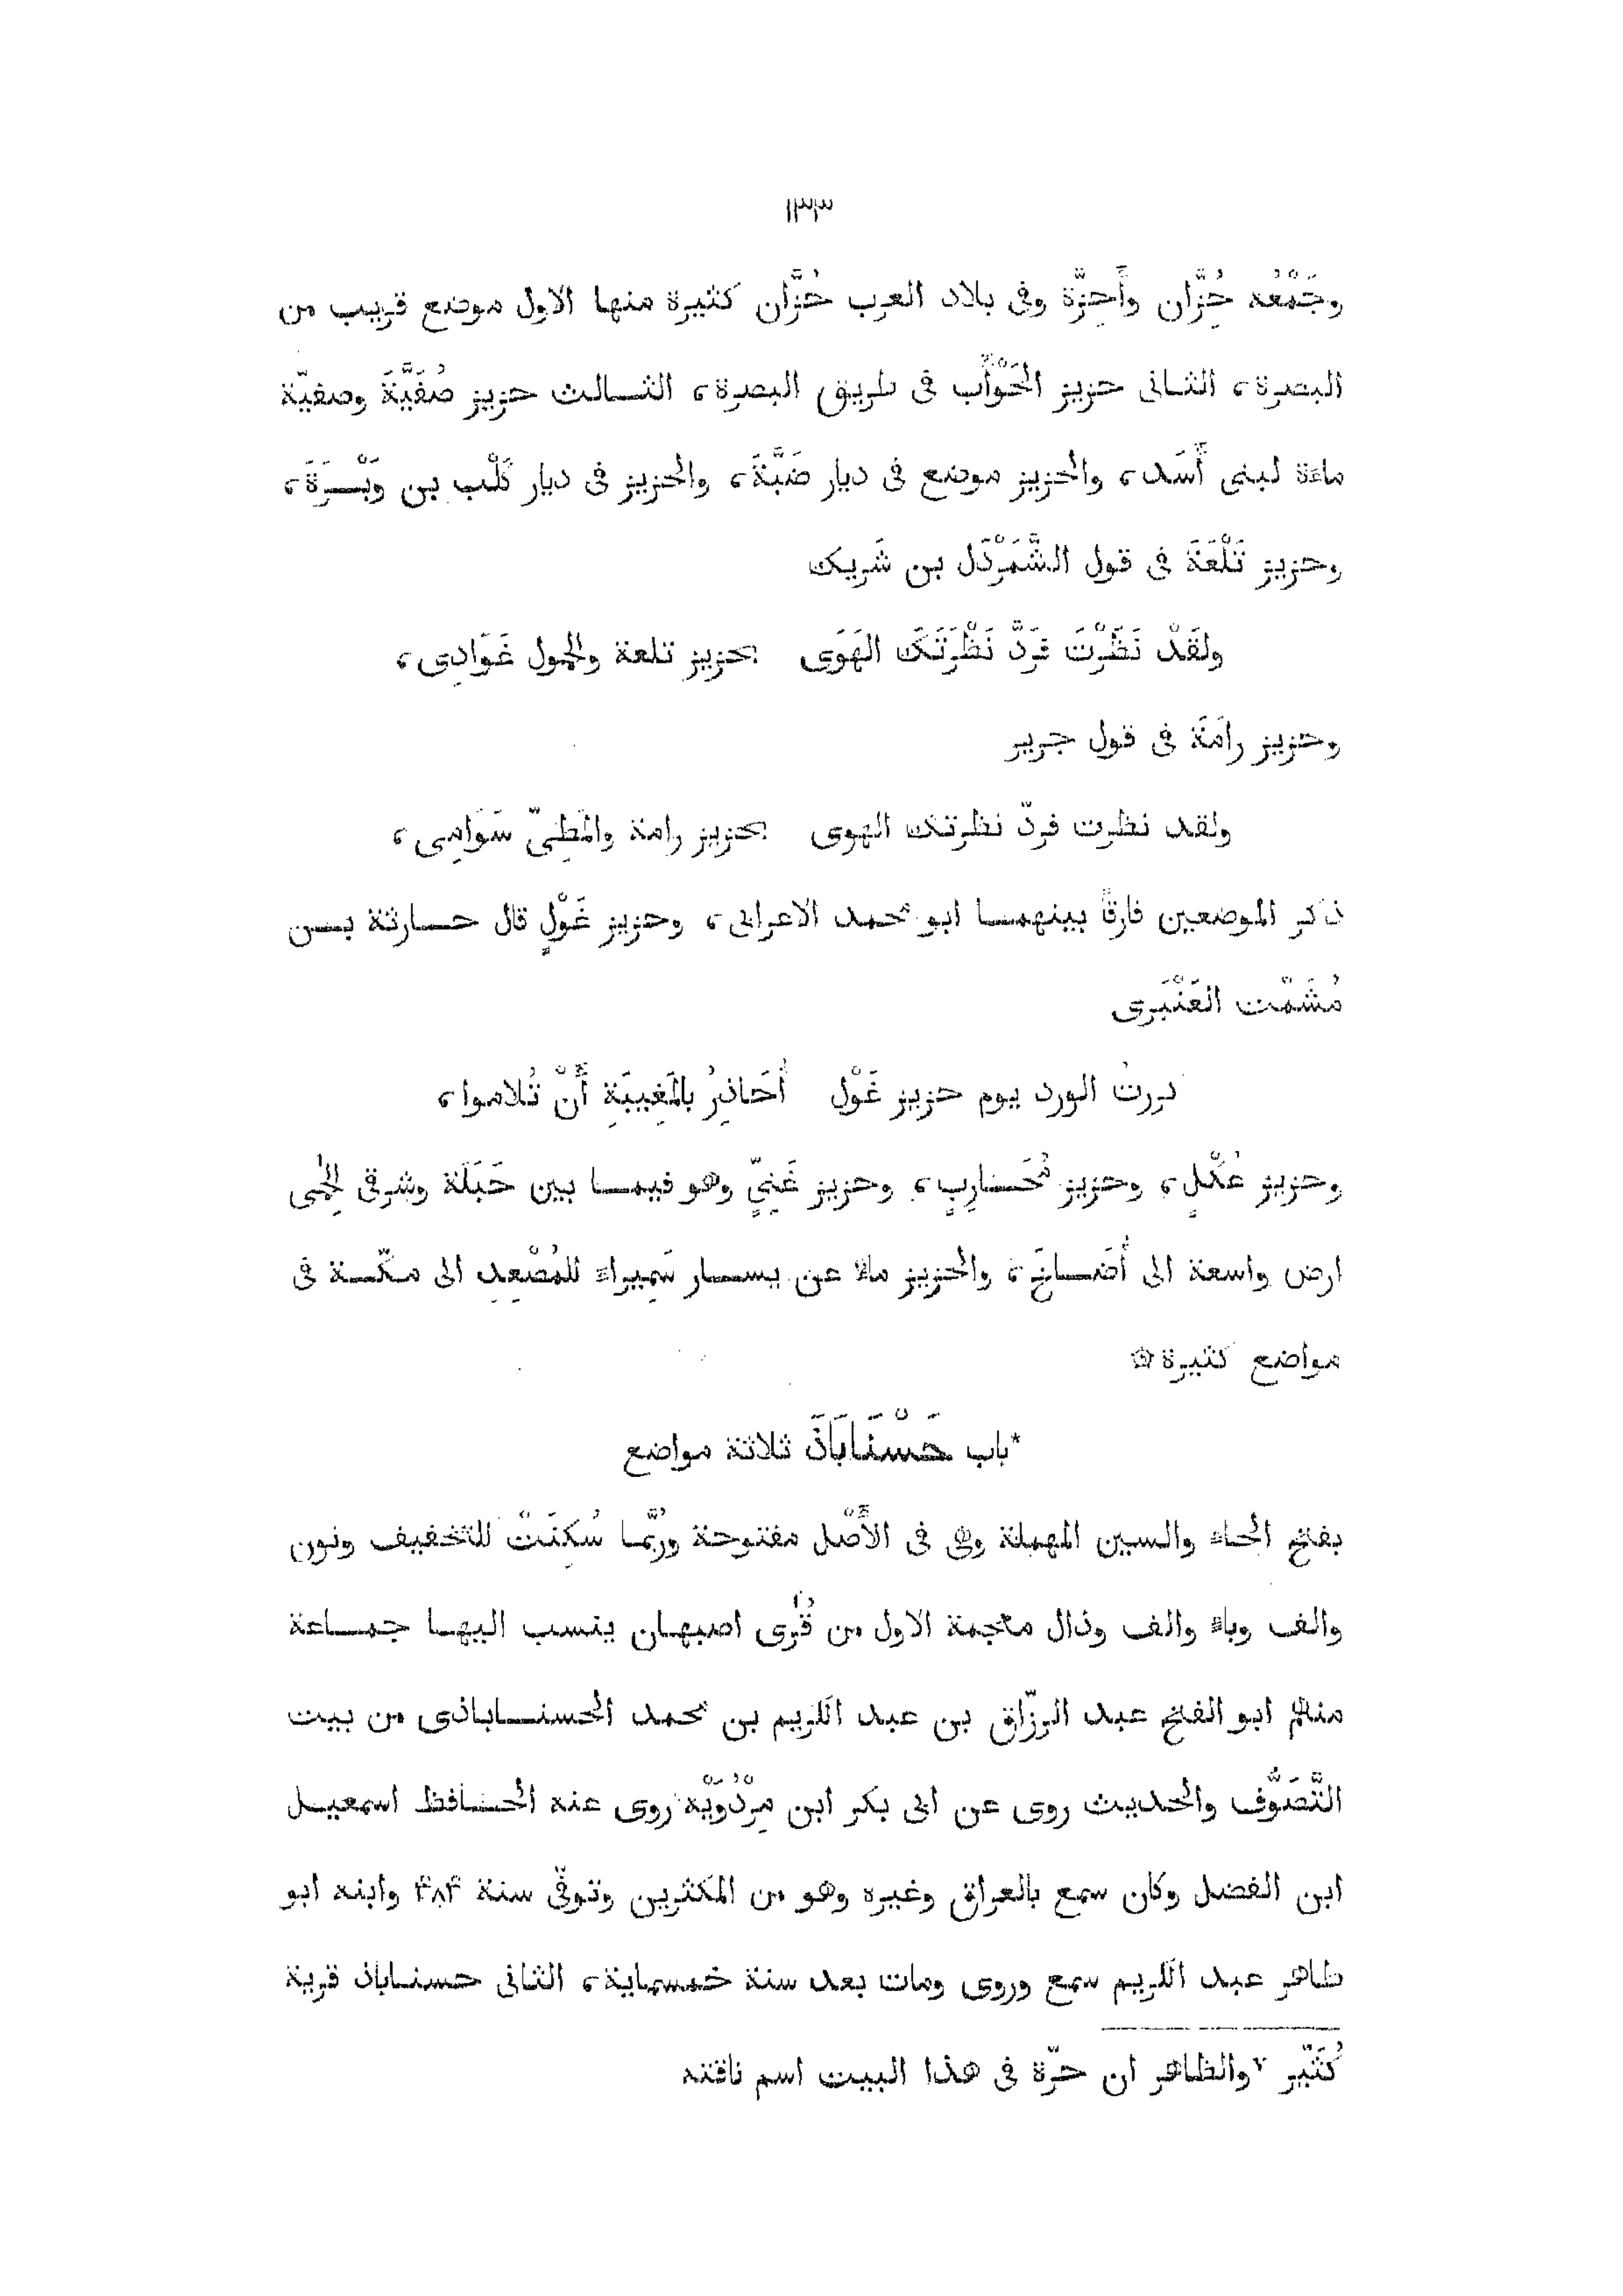 ١٣٣
وجَمْعُه حُِزَّان وأَحِزَّة وفى بلاد العرب حُزَّان كثيرة منها الاول موضع قريب من
البصرة، الثانى حزيز الحَوْأَب فى طريق البصرة، الثالث حزيز صُفَيَّةَ وصفيّة
ماءة لبنى أَسَد، والحزيز موضع فى ديار ضَبَّةَ، والحزيز فى ديار كَلْب بن وَبْرَةَ،
وحزيز تَلْعَةَ فى قول الشَّمَرْدَل بن شَريك
ولقَدْ نَظَرْتَ فرَدَّ نَظْرَتَكَ الهَوَى بحزيز تلعة والحمول غَوَادِى،
وحزيز رامَةَ فى قول جرير
ولقد نظرت فردّ نظرتك الهوى بحزيز رامة والمَطِىّ سَوَامِى،
ذكر الموضعين فارقًا بينهما ابو محمد الاعرابى، وحزيز غَوْلٍ قال حارثة بن
مُشَمّت العَنْبَرى
دررتُ الورد يوم حزيز غَوْل أُحَاذِرُ بالمَغِيبَةِ أَنْ تُلاموا،
وحزيز عُكْلٍ، وحزيز مُحَارِبٍ، وحزيز غَنِىٍّ وهو فيما بين حَبَلَة وشرقى الحِمى
ارض واسعة الى أُضَاخَِ، والحزيز ماء عن يسار سَمِيراء للمُصْعِدِ الى مكّة فى
مواضع كثيرة
*باب حَسْنَابَاذَ ثلاثة مواضع
بفتح الحاء والسين المهملة وهى فى الأَصْل مفتوحة ورُبَّما سُكِنَتْ للتخفيف ونون
والف وباء والف وذال معجمة الاول من قُرَى اصبهان ينسب اليها جماعة
منهم ابو الفتح عبد الرزّاق بن عبد الكريم بن محمد الحسناباذى من بيت
التَّصَوُّف والحديث روى عن ابى بكر ابن مِرْدُوَيْه روى عنه الحافظ اسمعيل
ابن الفضل وكان سمع بالعراق وغيره وهو من المكثرين وتوفّى سنة ۴۸۴ وابنه ابو
طاهر عبد الكريم سمع وروى ومات بعد سنة خمسماية، الثانى حسناباذ قرية
كُثَيّر ٧والظاهر ان حرّة فى هذا البيت اسم ناقته